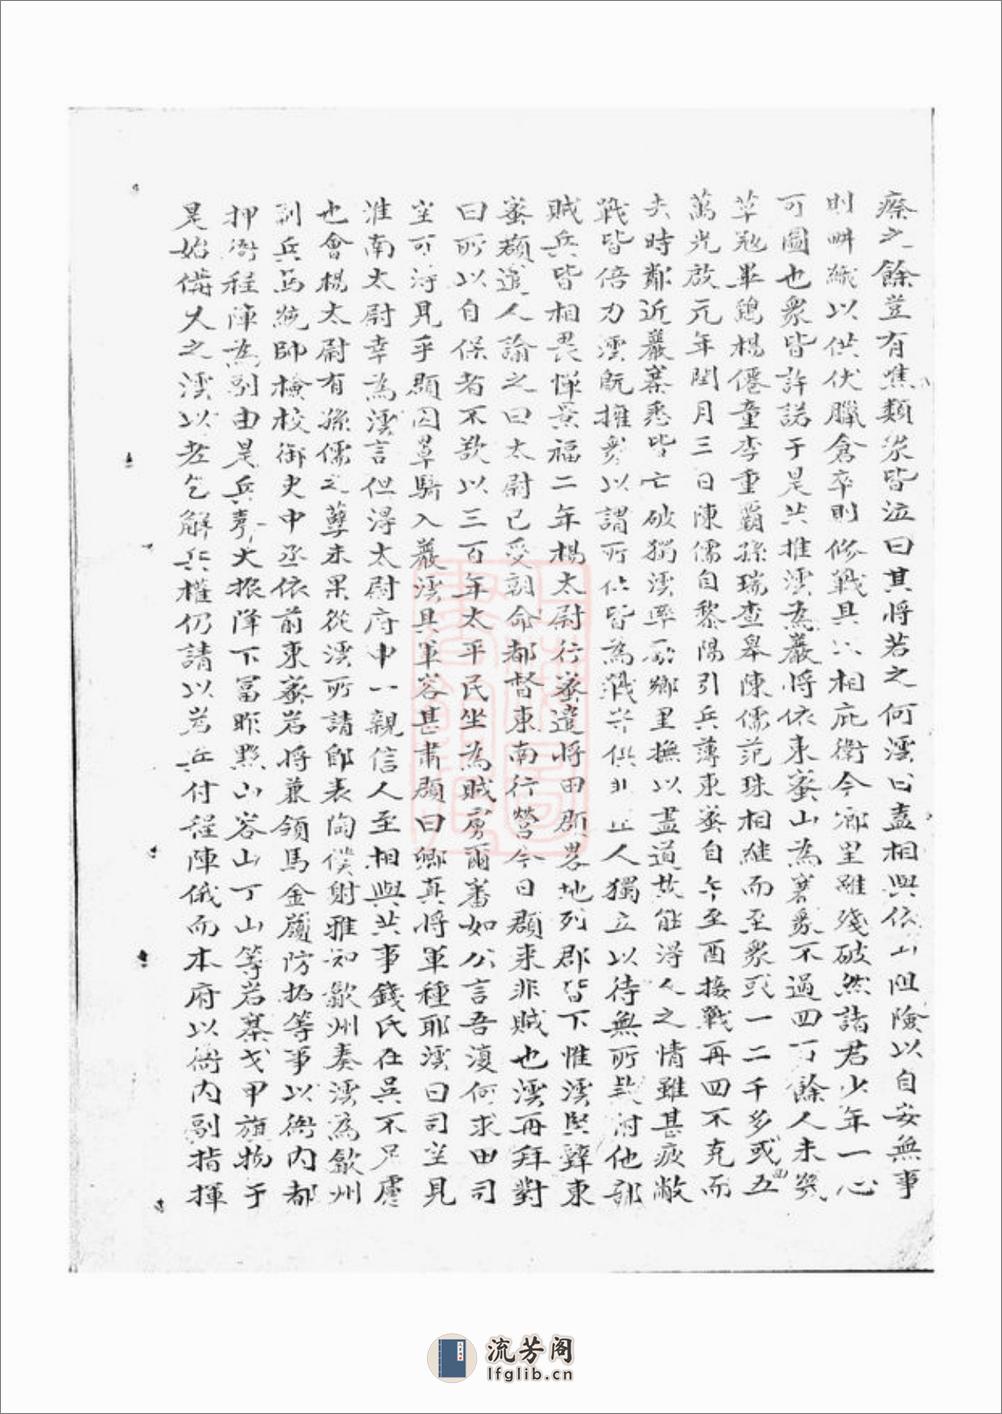 瘵之餘豈有噍類衆皆泣曰其將若之何澐曰盍相與依山阻險以自安無事
則畊織以供伏臘倉卒則修戰具以相庇衛今鄉里雖殘破然諸君少年一心
可圖也衆皆許諾于是共推澐為巖將依東蜜山為寨衆不過四百餘人未幾
草寇畢鷂楊僊童李重霸孫瑞查皋陳儒范珠相繼而至衆或一二千多或四五
萬光啟元年閏月三日陳儒自黎陽引兵薄東蜜自午至酉接戰再四不克而
去時鄰近巖寨悉皆亡破獨澐率鄉里撫以盡道共能得人之情雖甚疲敝
戰皆倍力澐既擁衆以謂所仕皆為戰爭供非正人獨立以待無所附他郡
賊兵皆相畏憚景福二年楊太尉行密遣將田頵畧地列郡皆下惟澐堅壁東
蜜頵遣人諭之曰太尉已受詔命都督東南行營今日頵來非賊也澐再拜對
曰所以自保者不欲以三百年太平民坐為賊虜爾審如公言吾復何求田司
空可得見乎頵因草騎入巖澐具軍容甚肅頵曰卿真將軍種耶澐曰司空見
淮南太尉幸為澐言但得太尉府中一親信人至相與共事錢氏在吳不足慮
也會楊太尉有孫儒之孽未果從澐所請即表陶僕射雅知歙州奏澐為歙州
訓兵馬統帥檢校御史中丞依前東蜜岩將兼領馬金嶺防扼等事以衙内都
押衙程陣為副由是兵聲大振降下冨昨黟山容山丁山等岩寨戈甲旗物于
是始備久之澐以老乞解兵權仍請以岩兵付程陣俄而本府以衙内副指揮
流芳阁
lfglib.cn